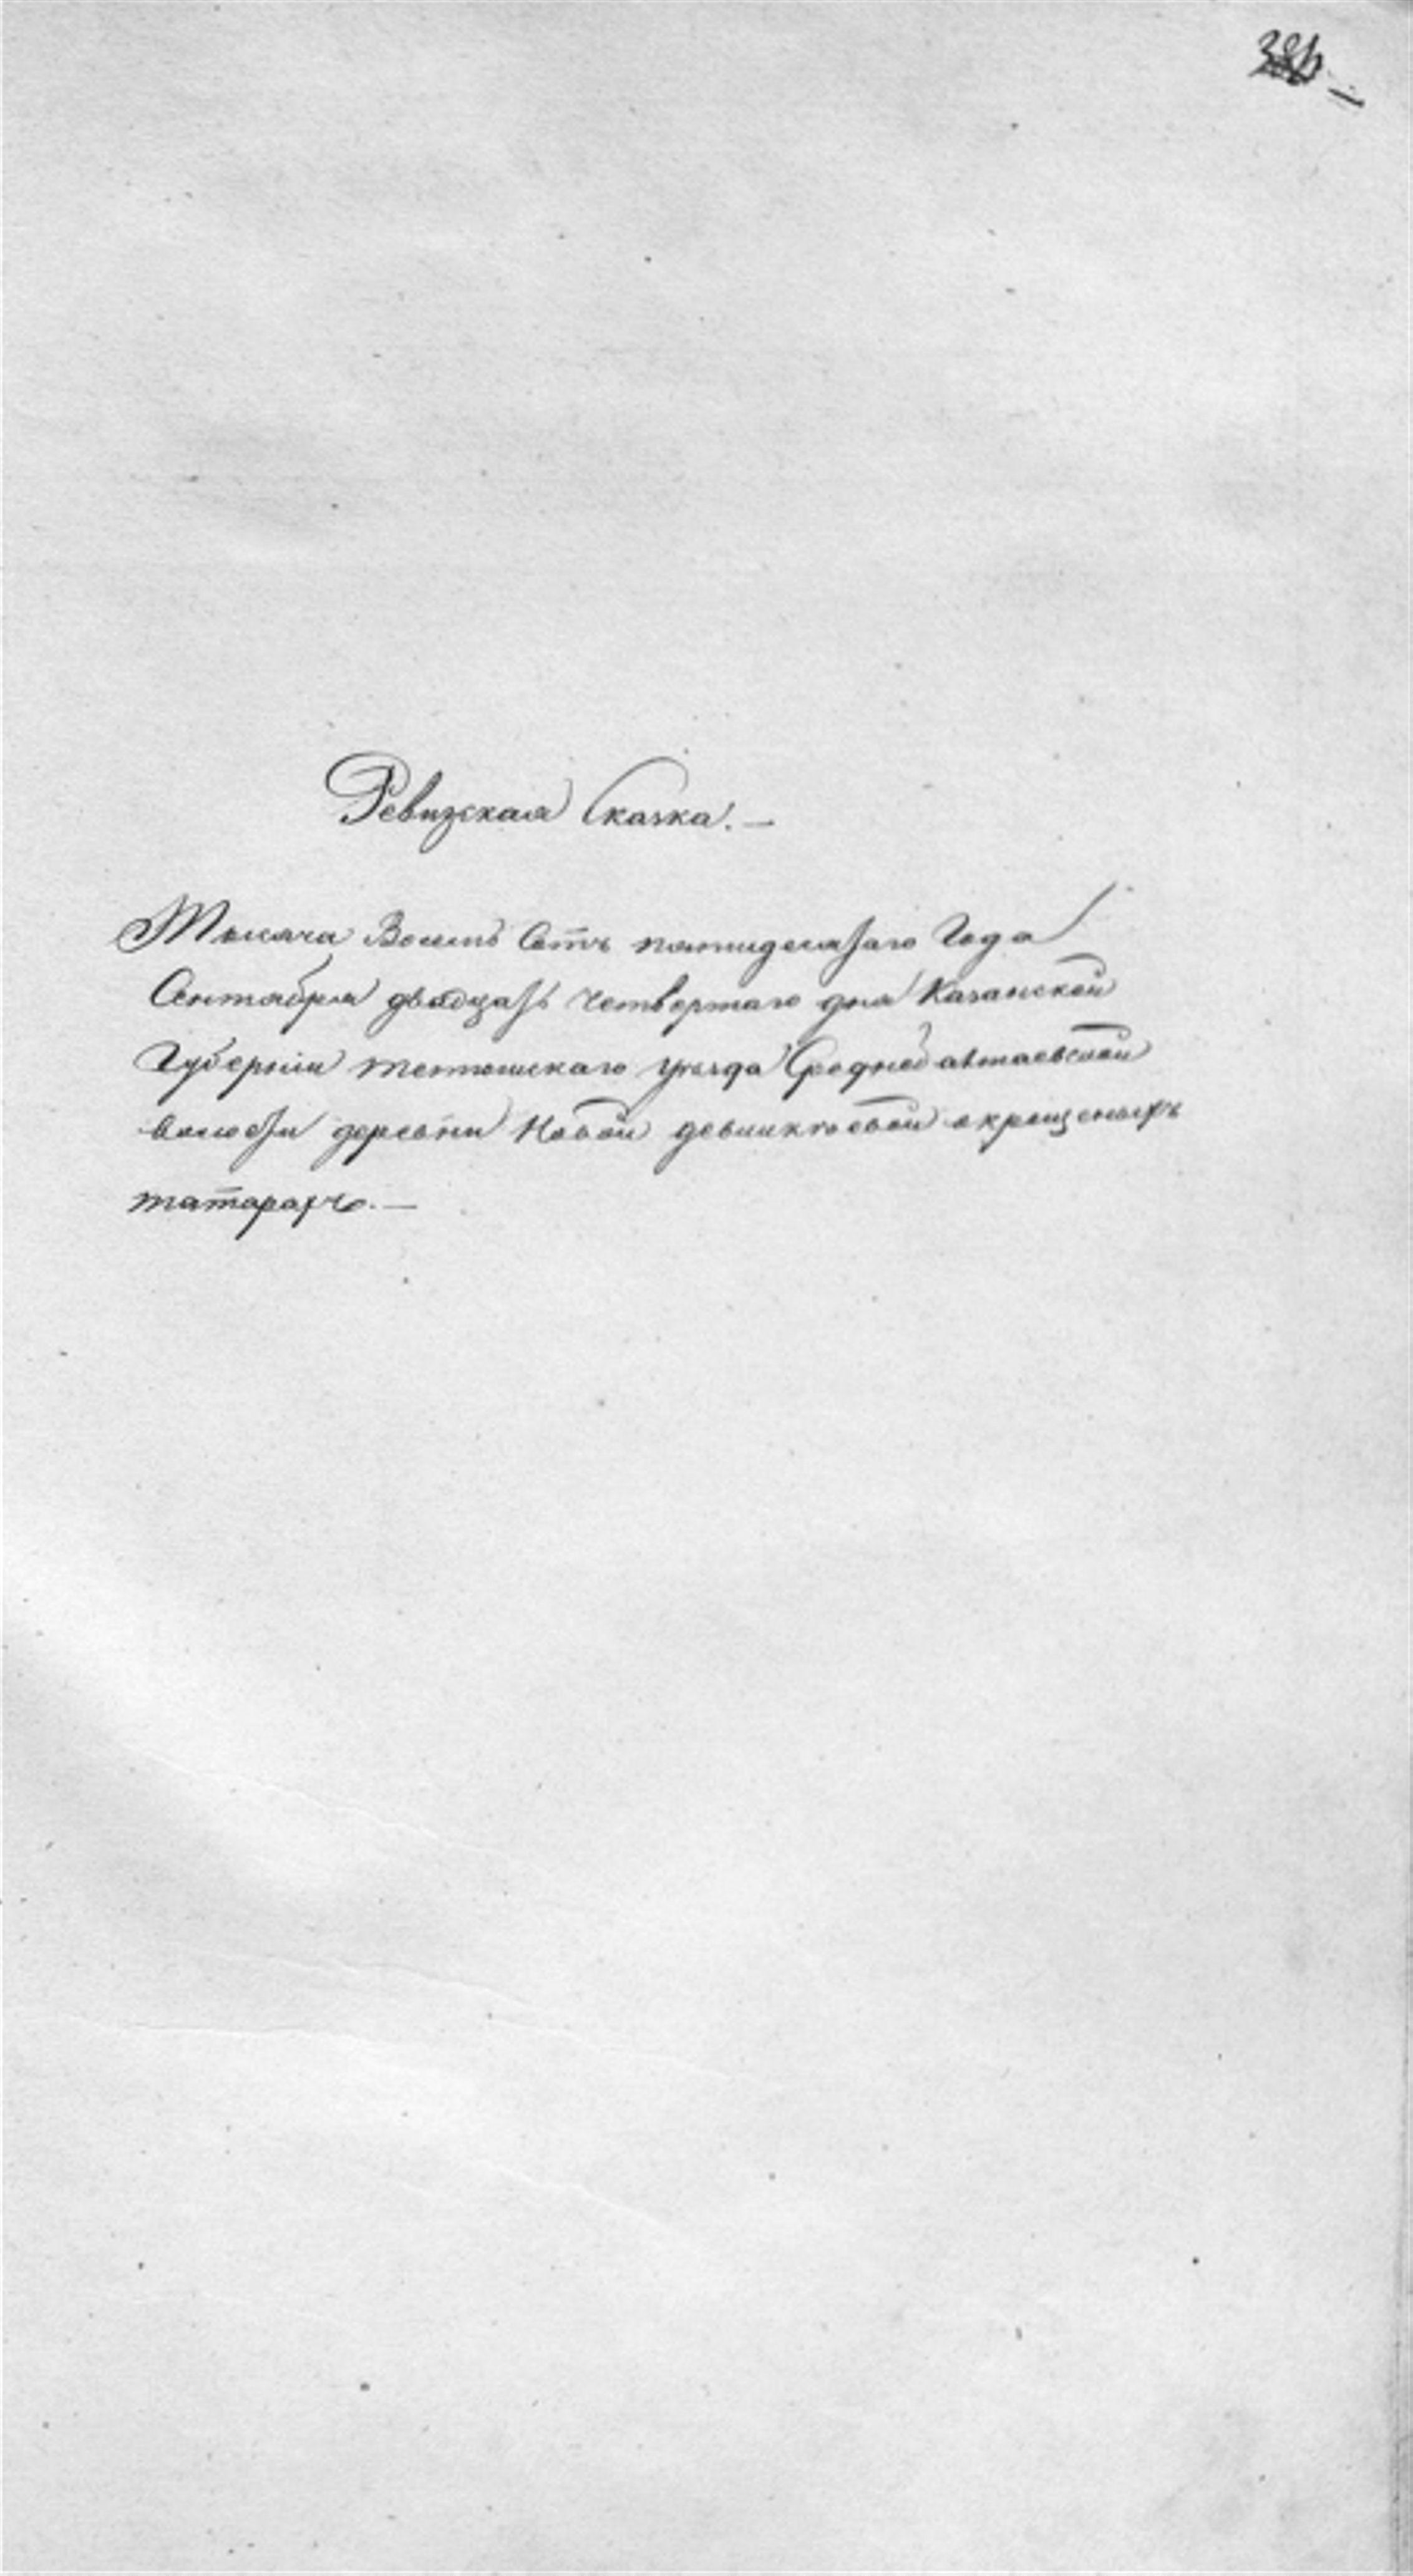 Ревизская Сказка. —
Тысяча Восемь Сотъ пятидесятаго Года
Сентября двадцать четвертаго дня Казанской
Губерніи тетюшскаго уезда Средней алтаевской
волости деревни Новой окрещеныхъ
татарахъ. —